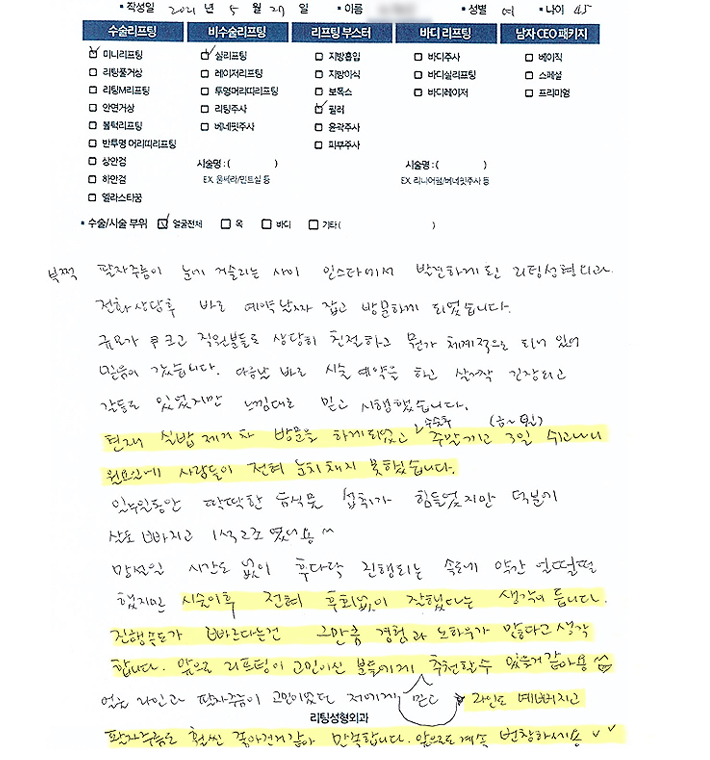 • 작성일 2021 년 5 월 29 일 • 이름 • 성별 여 • 나이 45
수술리프팅 비수술리프팅 리프팅 부스터 바디 리프팅 남자 CEO 패키지
미니리프팅 실리프팅 지방흡입 바디주사 베이직
리팅풀거상 레이저리프팅 지방이식 바디실리프팅 스페셜
리팅M리프팅 투명머리띠리프팅 보톡스 바디레이저 프리미엄
안면거상 리팅주사 필러
볼턱리프팅 버네빗주사 윤곽주사
반투명 머리띠리프팅 피부주사
상안검 시술명 : ( ) 시술명 : ( )
하안검 EX. 울쎄라/민트실 등 EX. 리니어펌/버네빗주사 등
엘라스타꿈
• 수술/시술 부위 얼굴전체 목 바디 기타 ( )
부쩍 팔자주름이 눈에 거슬리는 사이 인스타에서 발견하게 된 리팅성형외과.
전화상담후 바로 예약날짜 잡고 방문하게 되었습니다.
규모가 크고 직원분들도 상당히 친절하고 뭔가 체계적으로 되어 있어
믿음이 갔습니다. 다음날 바로 시술 예약을 하고 살짝 긴장되고
갈등도 있었지만 느낌대로 믿고 시행했습니다.
수술후 (금~월)
현재 실밥 제거차 방문을 하게되었고 주말끼고 3일 쉬고나니
월요일에 사람들이 전혀 눈치채지 못했습니다.
일주일동안 딱딱한 음식물 섭취가 힘들었지만 덕분에
살도 빠지고 1석2조 였어용 ^^
망설일 시간도 없이 후다닥 진행되는 속도에 약간 얼떨떨
했지만 시술이후 전혀 후회없이 잘했다는 생각이 듭니다.
진행속도가 빠르다는건 그만큼 경험과 노하우가 많다고 생각
합니다. 앞으로 리프팅이 고민이신 분들에게 추천할수 있을거 같아용
얼굴 라인과 팔자주름이 고민이었던 저에게 믿고 라인도 예뻐지고
리팅성형외과
팔자주름도 훨씬 좋아진거같아 만족합니다. 앞으로도 계속 번창하세용